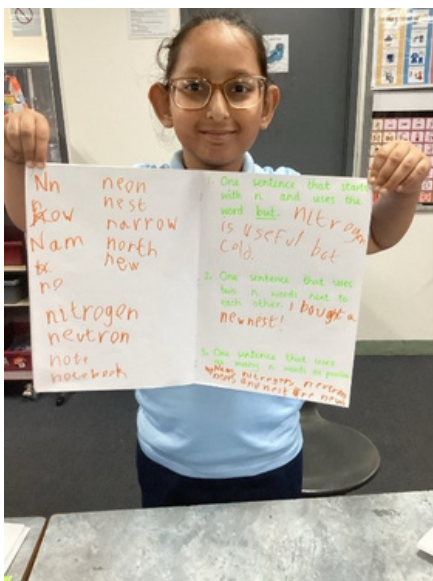 Nn
now
Nam
no
nitrogen
neutron
note
notebook
neon
nest
narrow
north
new
1. One sentence that starts
with n and uses the
word but. nitrogen
is useful but
cold.
2. One sentence that uses
two n words next to
each other. I bought a
new nest!
3. One sentence that uses
as many n words as possible
nitrogens, neutrons
and nest are new